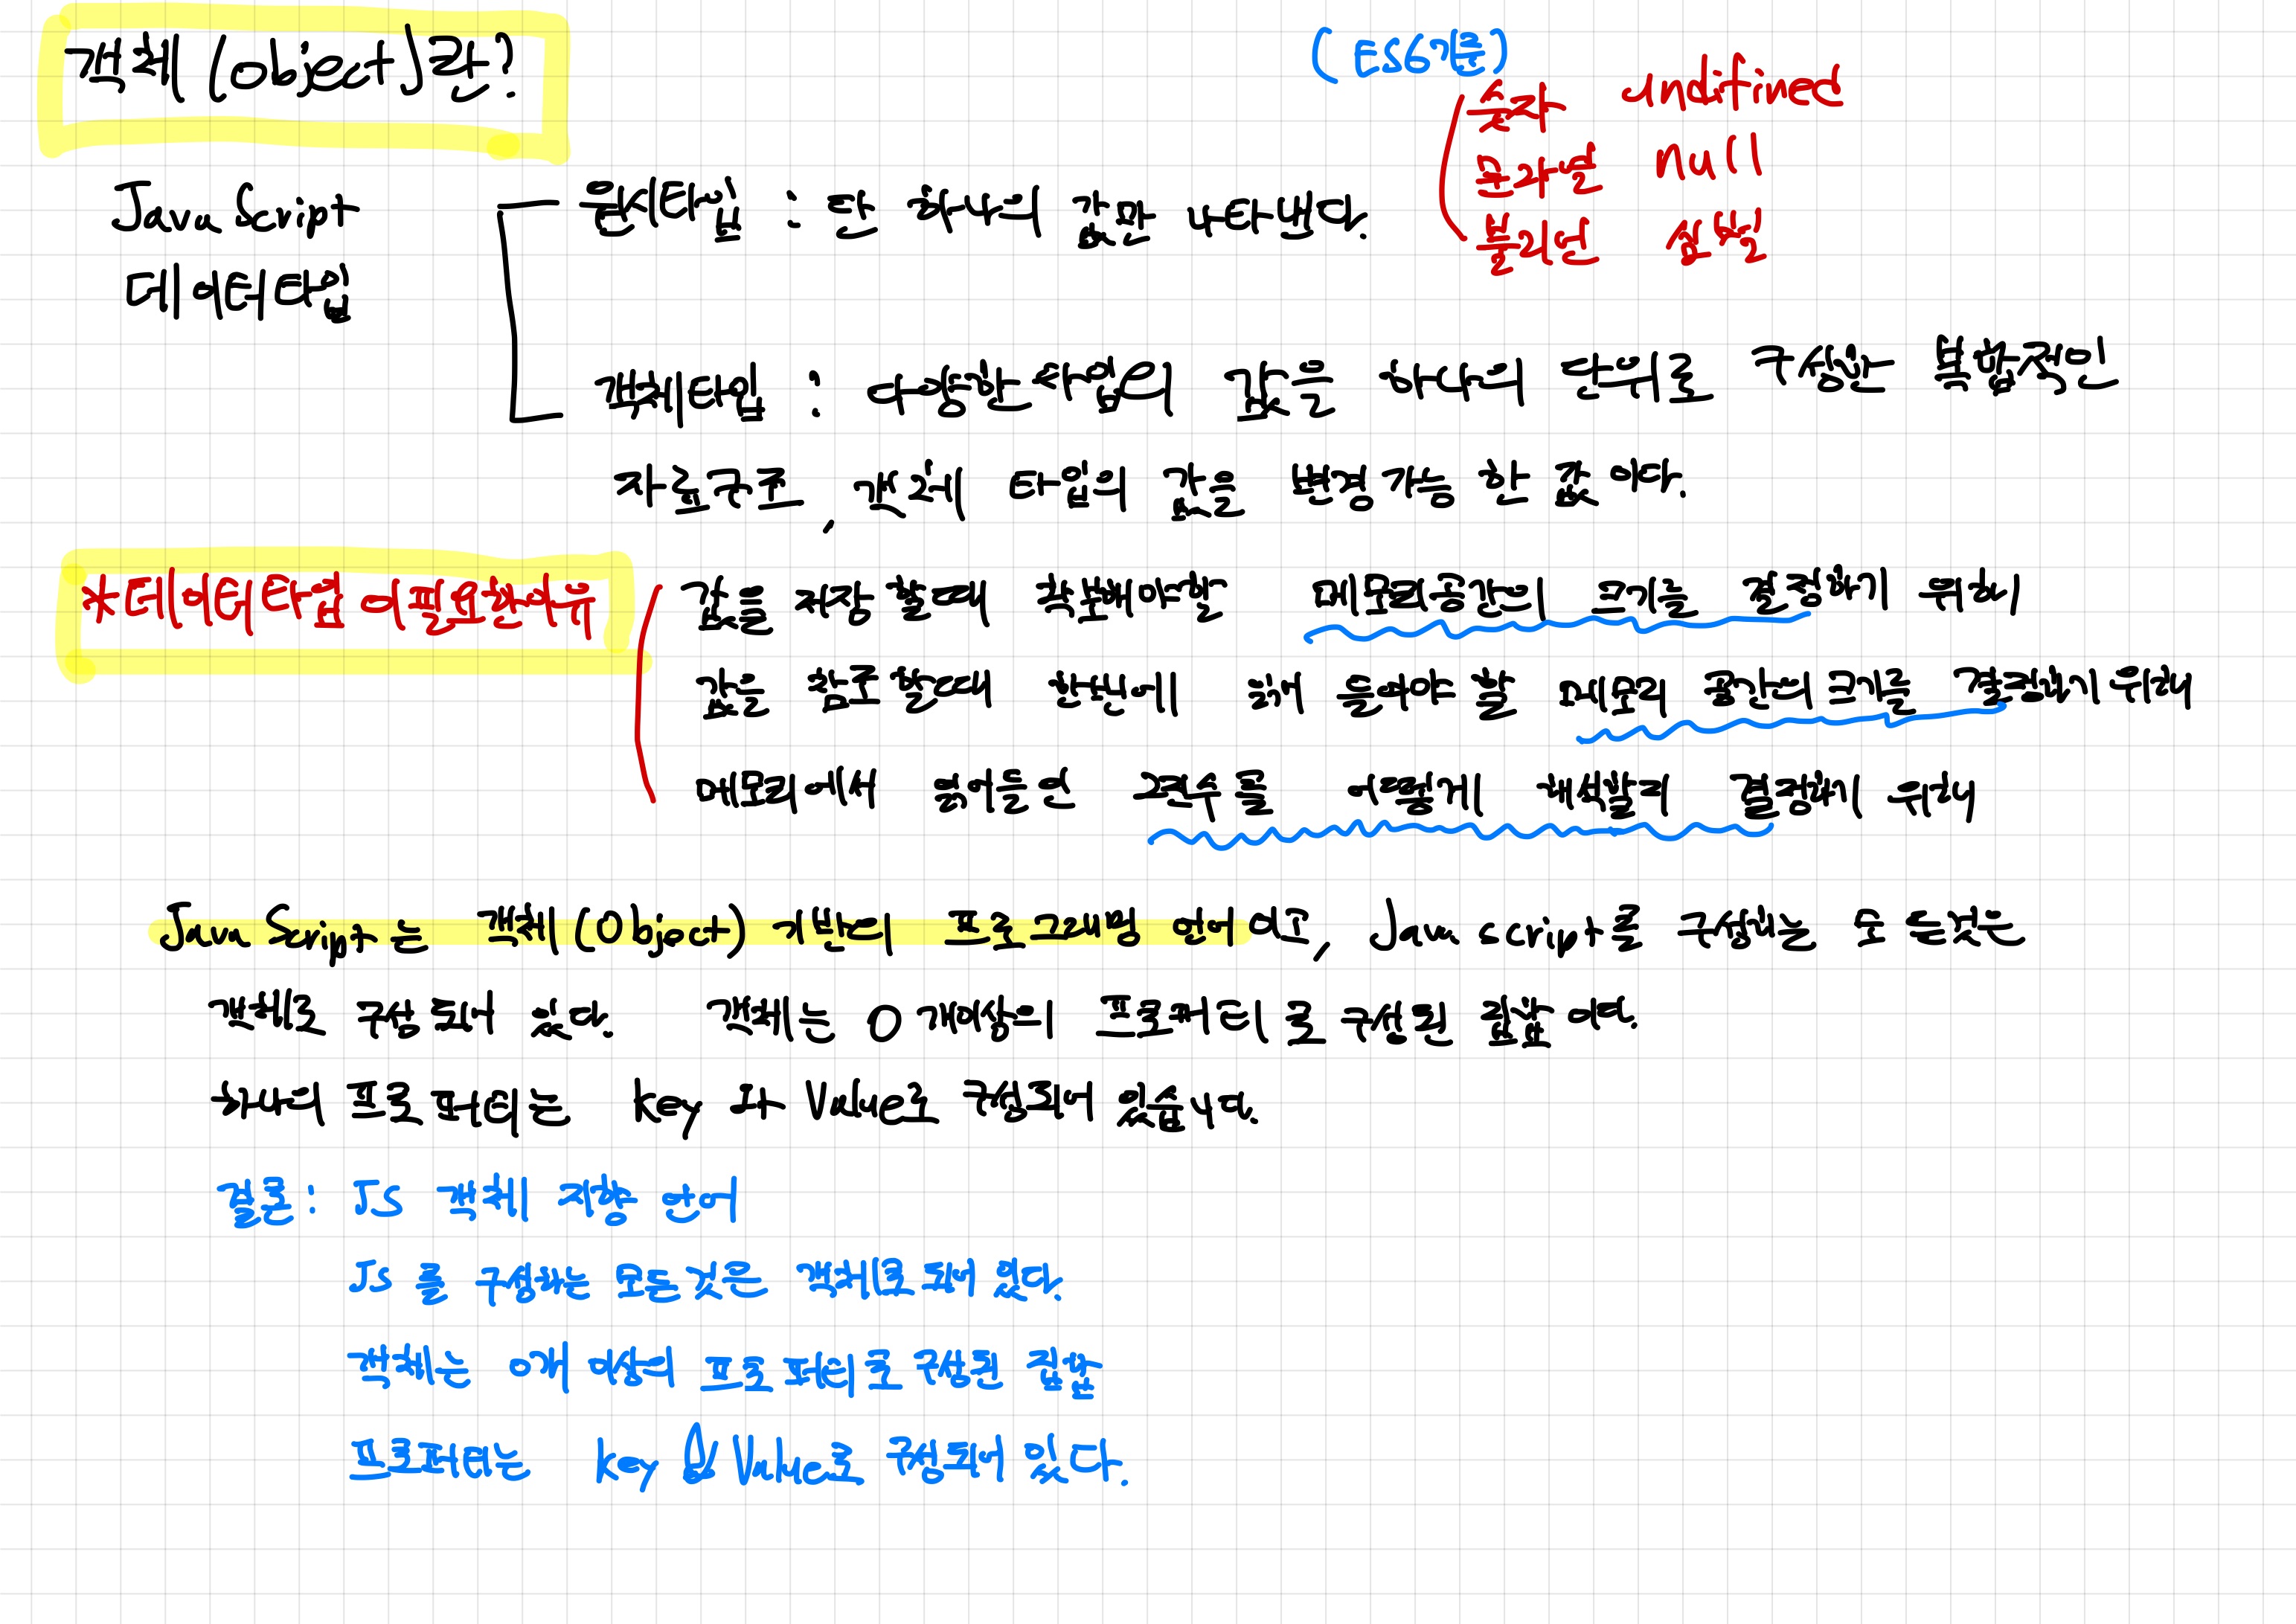 객체 (object)란?
(ES6기준)
숫자 undifined
문자열 null
불리언 심벌
Java Script
데이터타입
원시타입 : 단 하나의 값만 나타낸다.
객체타입 : 다양한 타입의 값을 하나의 단위로 구성한 복합적인
자료구조, 객체 타입의 값을 변경가능 한 값 이다.
*데이터타입 이필요한이유
값을 저장 할때 확보해야할 메모리공간의 크기를 결정하기 위해
값을 참조 할때 한번에 읽어 들여야 할 메모리 공간의 크기를 결정하기 위해
메모리에서 읽어들인 2진수를 어떻게 해석할지 결정하기 위해
Java Script는 객체(Object) 기반의 프로그래밍 언어 이고, Java script를 구성하는 모든것은
객체로 구성 되어 있다. 객체는 0개이상의 프로퍼티로 구성된 집합 이다.
하나의 프로퍼티는 key 와 Value로 구성되어 있습니다.
결론: JS 객체 지향 언어
JS 를 구성하는 모든것은 객체로 되어 있다.
객체는 0개 이상의 프로퍼티로 구성된 집합
프로퍼티는 key & Value로 구성되어 있다.